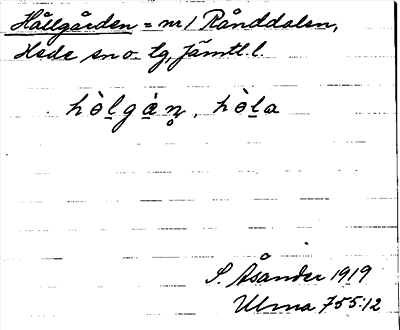 Hållgården = nr 1 Rånddalen,
Hede sn o. tg, Jämtl. l.
hòlgàn̥, hòla
S. Åsander 1919
Ulma 755:12